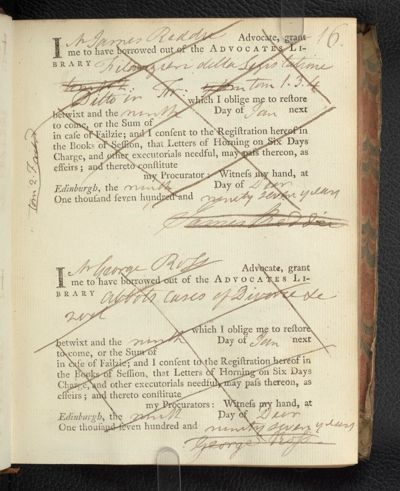 16
I Mr James Reddie Advocate, grant
me to have borrowed out of the ADVOCATES LI-
BRARY Filangieri della Legislatione
Ditto in Fr. tom 1. 3. 4
which I oblige me to restore
betwixt and the ninth Day of Jan next
to come, or the Sum of
in case of Failzie; and I consent to the Registration hereof in
the Books of Session, that Letters of Horning on Six Days
Charge, and other executorials needful, may pass thereon, as
effeirs; and thereto constitute
my Procurator: Witness my hand, at
Edinburgh, the ninth Day of Decr
One thousand seven hundred and ninety seven years
James Reddie
I Mr George Ross Advocate, grant
me to have borrowed out of the ADVOCATES LI-
BRARY Cases of Divorce &c
which I oblige me to restore
betwixt and the ninth Day of Jan next
to come, or the Sum of
in case of Failzie; and I consent to the Registration hereof in
the Books of Session, that Letters of Horning on Six Days
Charge, and other executorials needful, may pass thereon, as
effeirs; and thereto constitute
my Procurators: Witness my hand, at
Edinburgh, the ninth Day of Decr
One thousand seven hundred and ninety seven years
George Ross